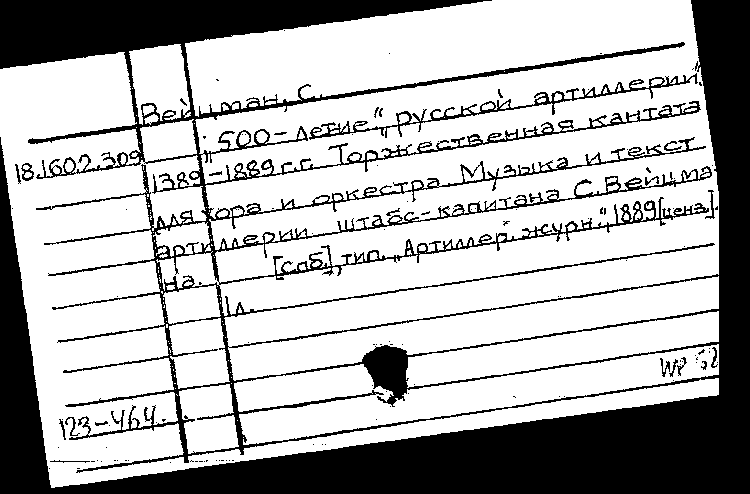 Вейцман, С.
„500-летие“ „русской артиллерии“.
18.160.2.309 1389-1889 г.г. Торжественная кантата
для хора и оркестра. Музыка и текст
артиллерии штабс-капитана С. Вейцма-
на. [Спб.], тип. „Артиллер. журн.“, 1889 [цена].
1 л.
123-464.